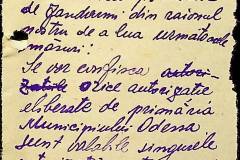 de jandarmi din raionul
nostru de a lua următoarele
masuri:
Se vor confisca autori-
zatiile orice autorizatie
eliberate de primăria
Municipiului Odessa
sunt valabile singurele